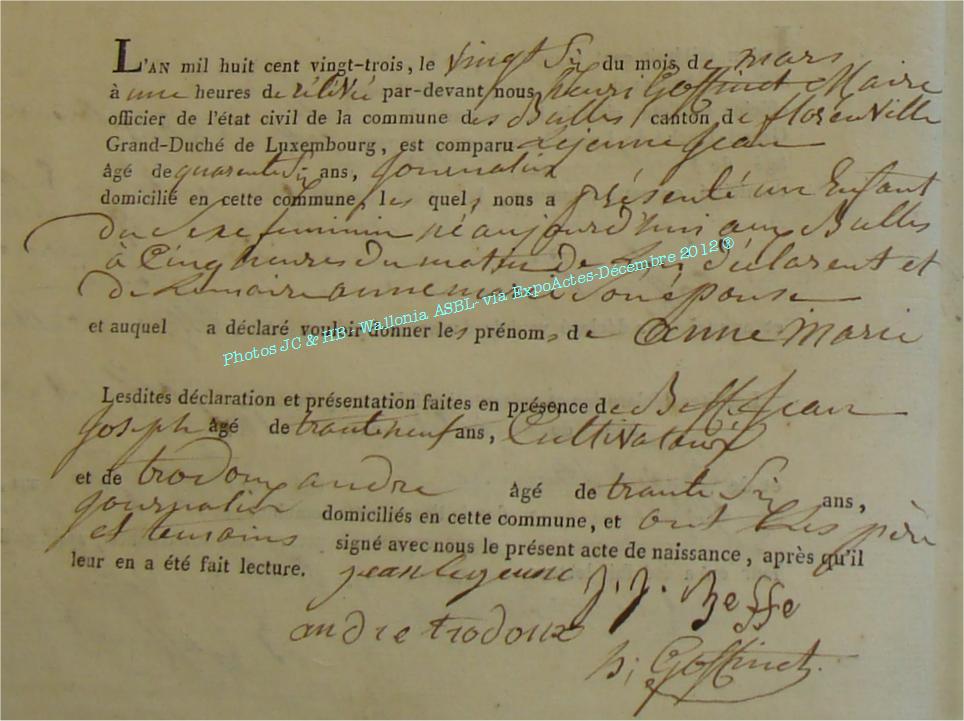 L'AN mil huit cent vingt-trois, le vingt Six du mois de mars
à une heures de rélévé par-devant nous henri Goffinet Maire
officier de l'état civil de la commune des Bulles canton de florenville
Grand-Duché de Luxembourg, est comparu Lejeune Jean
âgé de quarente Six ans, journalix
domicilié en cette commune, les quels nous a présenté un Enfant
du Sexe feminin né aujourd'hui aux Bulles
à Cinq heures du matin De Lui déclarent et
de anne marie Son épouse
et auquel a déclaré vouloir donner les prénoms de anne marie
Photos JC & HB - Wallonia ASBL- via ExpoActes-Décembre 2012®
Lesdites déclaration et présentation faites en présence de Beffe Jean
Joseph âgé de trante neuf ans, Cultivateur
et de trodoux andre âgé de trante Six ans,
journalix domiciliés en cette commune, et ont Les père
et temoins signé avec nous le présent acte de naissance, après qu'il
leur en a été fait lecture. jean lejeune J. J. Beffe
andre trodoux
h; Goffinet.